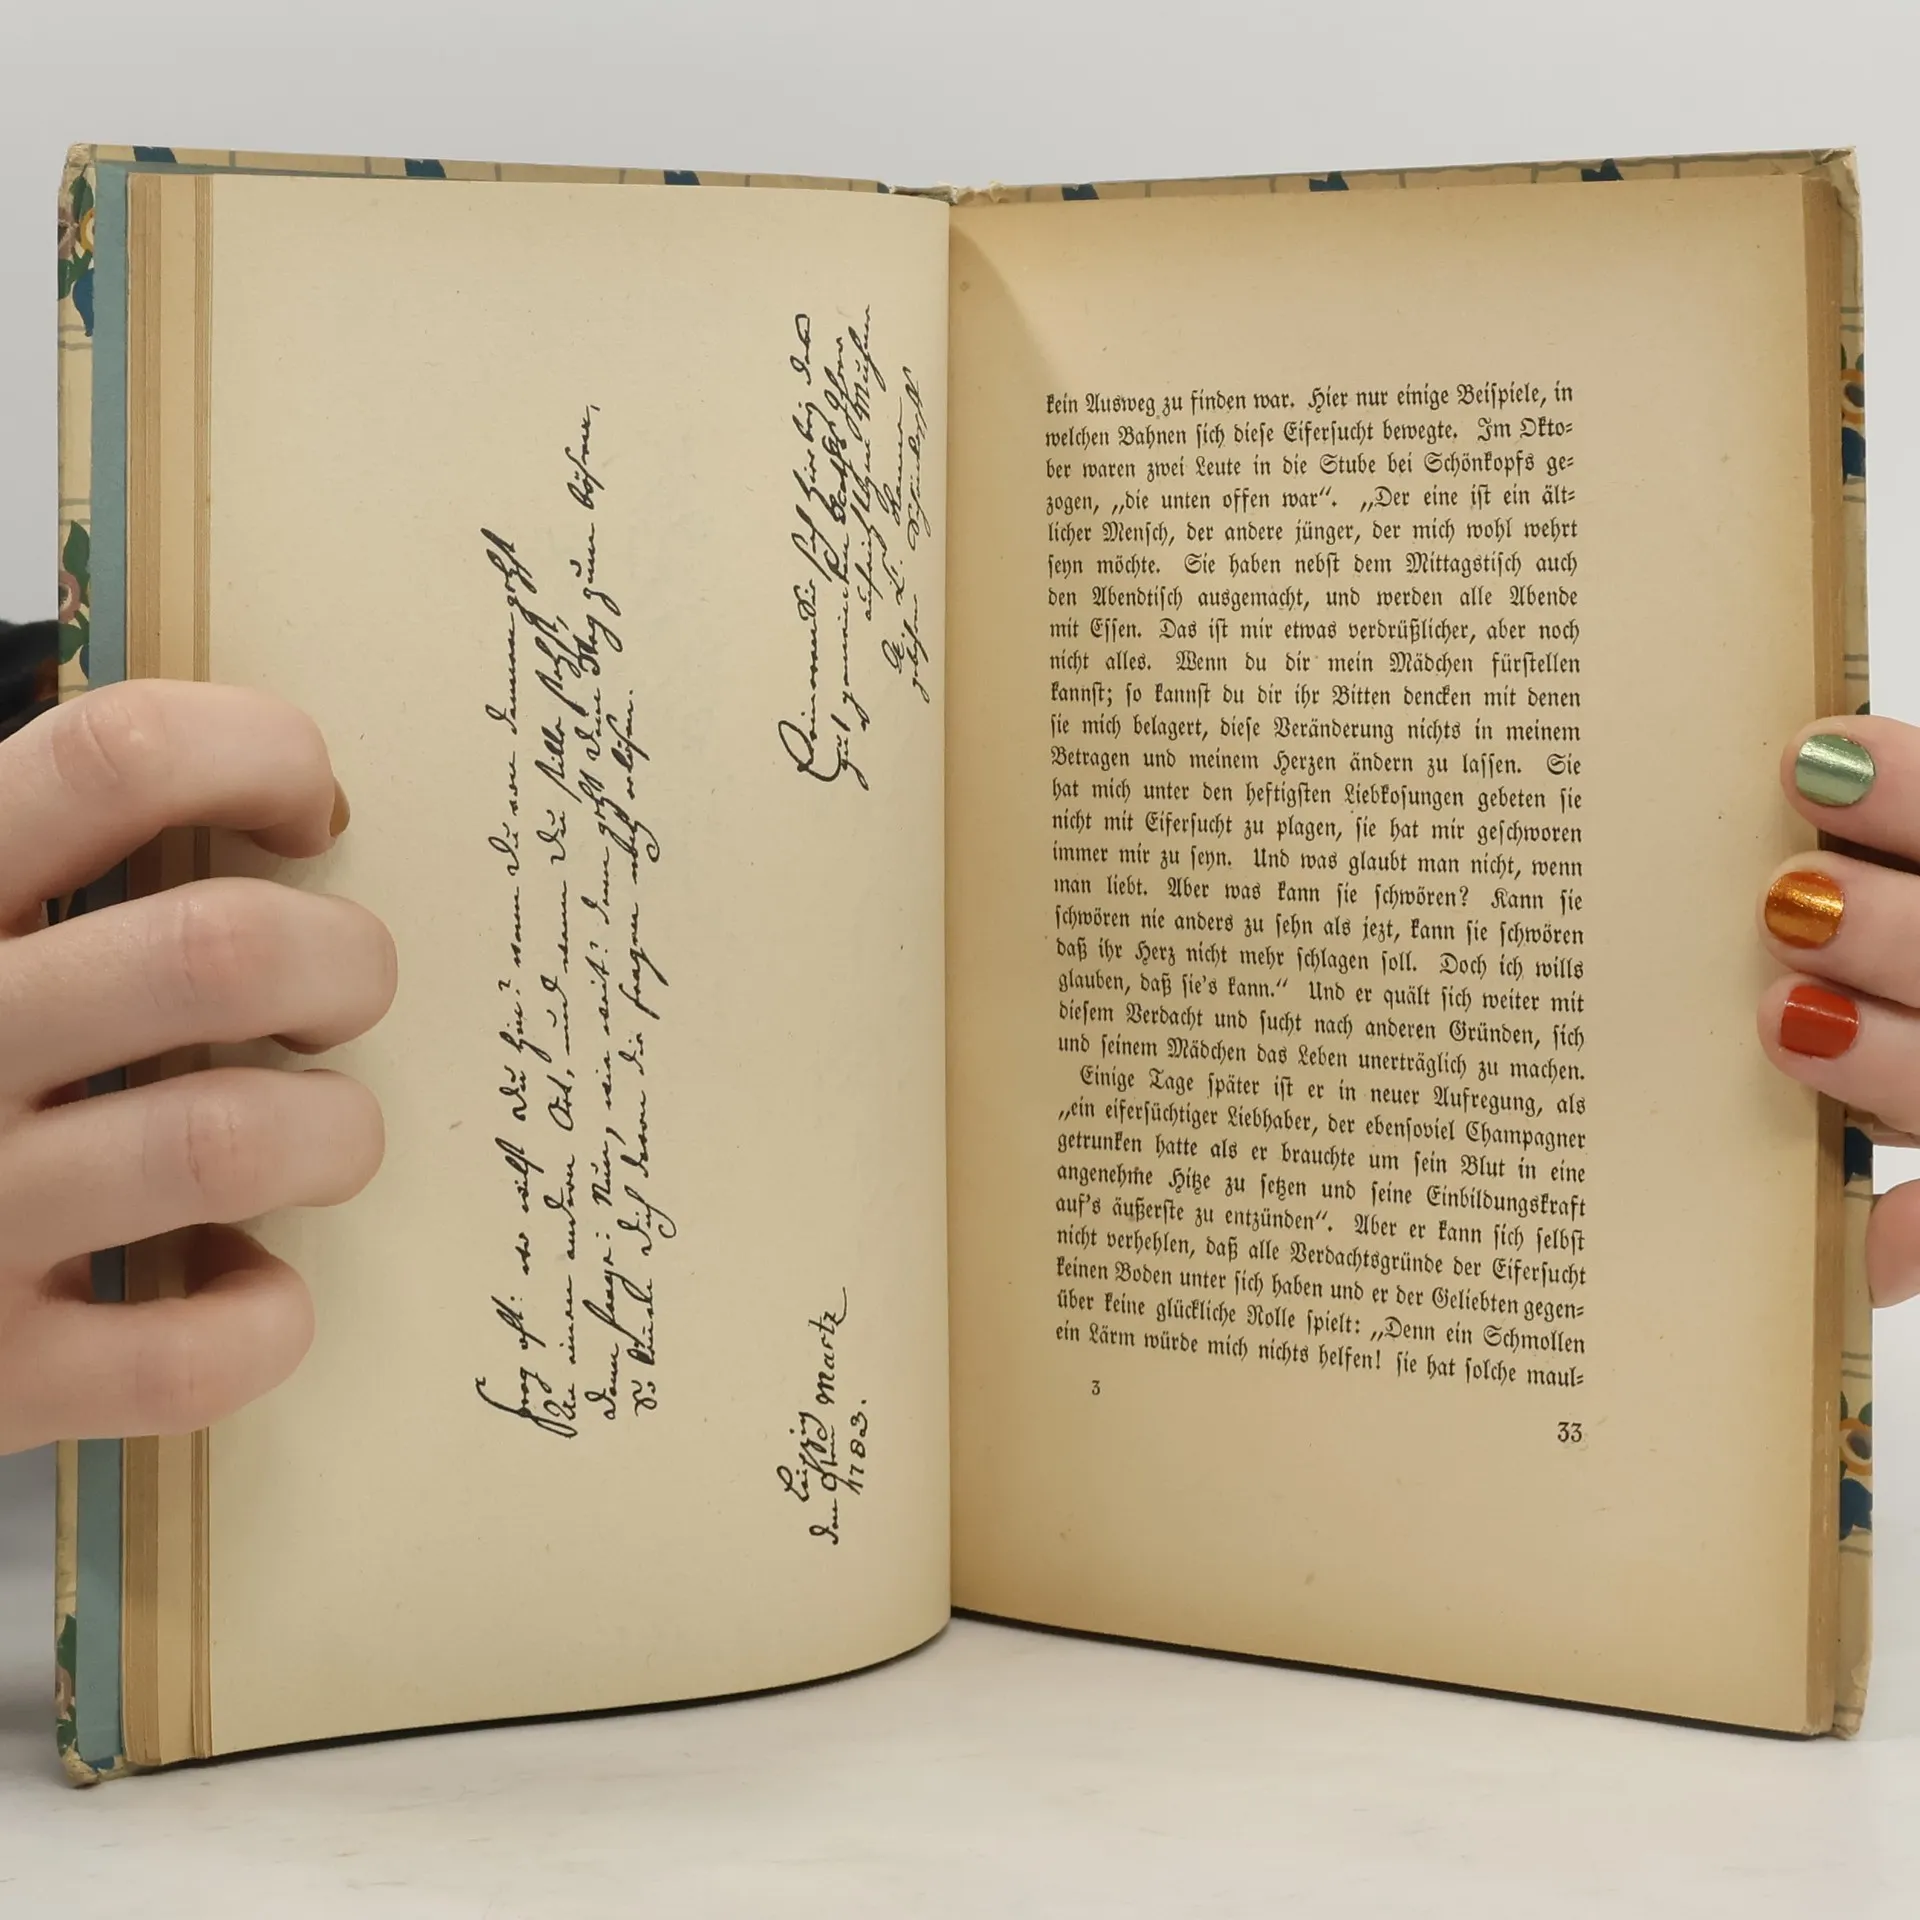 Frag oft: wo willst Du hin? wenn Du von dannen gehst
An einen andern Ort, und wenn Du stille stehst,
Dann frage: Nun, wie weit? denn geht Dein Weg zum bösen,
So Dich davon die fragen noch erlösen.
Erinnern Sie sich hier bey
Leipzig
den Martz
kein Ausweg zu finden war. Hier nur einige Beispiele, in
welchen Bahnen sich diese Eifersucht bewegte. Im Okto-
ber waren zwei Leute in die Stube bei Schönkopfs ge-
zogen, „die unten offen war“. „Der eine ist ein ält-
licher Mensch, der andere jünger, der mich wohl wehrt
seyn möchte. Sie haben nebst dem Mittagstisch auch
den Abendtisch ausgemacht, und werden alle Abende
mit Essen. Das ist mir etwas verdrüßlicher, aber noch
nicht alles. Wenn du dir mein Mädchen fürstellen
kannst; so kannst du dir ihr Bitten dencken mit denen
sie mich belagert, diese Veränderung nichts in meinem
Betragen und meinem Herzen ändern zu lassen. Sie
hat mich unter den heftigsten Liebkosungen gebeten sie
nicht mit Eifersucht zu plagen, sie hat mir geschworen
immer mir zu seyn. Und was glaubt man nicht, wenn
man liebt. Aber was kann sie schwören? Kann sie
schwören nie anders zu sehn als jezt, kann sie schwören
daß ihr Herz nicht mehr schlagen soll. Doch ich wills
glauben, daß sie's kann.“ Und er quält sich weiter mit
diesem Verdacht und sucht nach anderen Gründen, sich
und seinem Mädchen das Leben unerträglich zu machen.
Einige Tage später ist er in neuer Aufregung, als
„ein eifersüchtiger Liebhaber, der ebensoviel Champagner
getrunken hatte als er brauchte um sein Blut in eine
angenehme Hitze zu setzen und seine Einbildungskraft
auf's äußerste zu entzünden“. Aber er kann sich selbst
nicht verhehlen, daß alle Verdachtsgründe der Eifersucht
keinen Boden unter sich haben und er der Geliebten gegen-
über keine glückliche Rolle spielt: „Denn ein Schmollen
ein Lärm würde mich nichts helfen! sie hat solche maul-
3
33